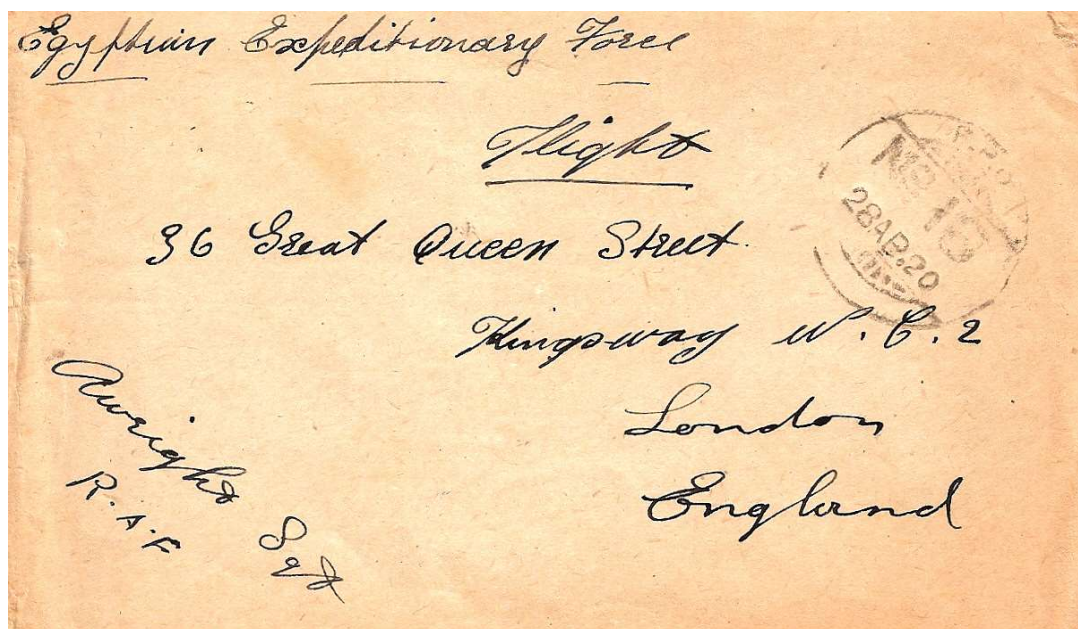 Egyptian Expeditionary Force
Flight
36 Great Queen Street
Kingsway W.C.2
London
England
Awright Sgt
R.A.F
No 13
28 AB.20